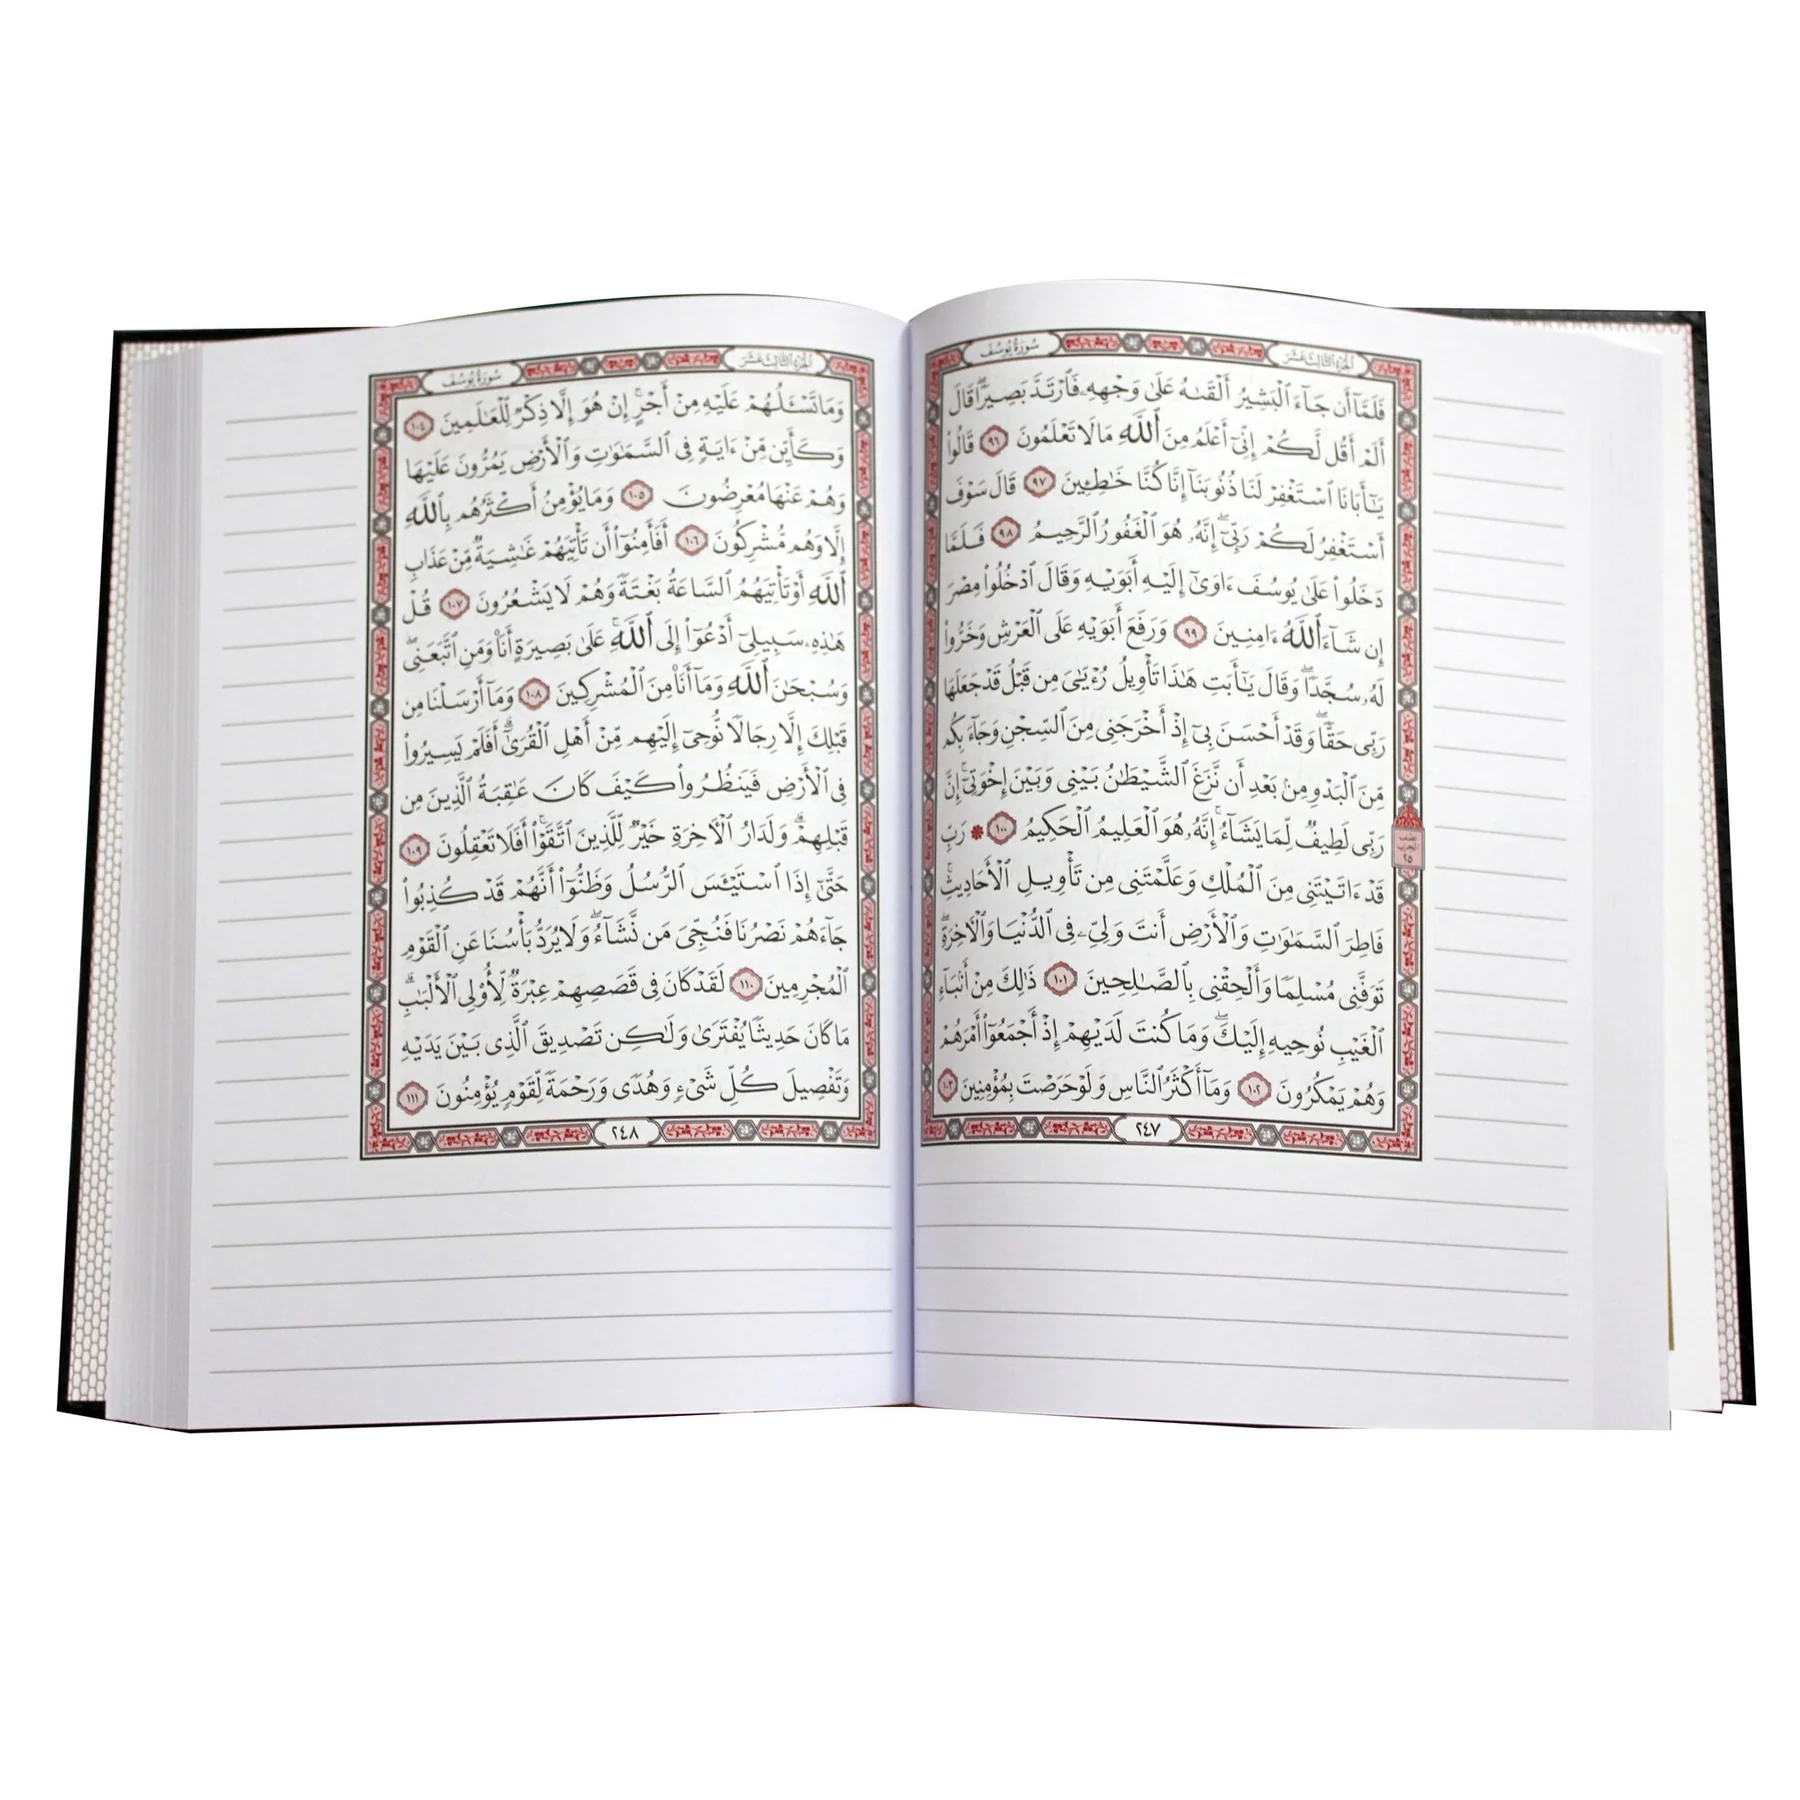 سُورَةُ يُوسُفَ
الجُزءُ الثَّالِثَ عَشَرَ
فَلَمَّآ أَن جَآءَ ٱلْبَشِيرُ أَلْقَىٰهُ عَلَىٰ وَجْهِهِۦ فَٱرْتَدَّ بَصِيرًاۖ قَالَ
أَلَمْ أَقُل لَّكُمْ إِنِّىٓ أَعْلَمُ مِنَ ٱللَّهِ مَا لَا تَعْلَمُونَ ٩٦ قَالُوا۟
يَـٰٓأَبَانَا ٱسْتَغْفِرْ لَنَا ذُنُوبَنَآ إِنَّا كُنَّا خَـٰطِـِٔينَ ٩٧ قَالَ سَوْفَ
أَسْتَغْفِرُ لَكُمْ رَبِّىٓۖ إِنَّهُۥ هُوَ ٱلْغَفُورُ ٱلرَّحِيمُ ٩٨ فَلَمَّا
دَخَلُوا۟ عَلَىٰ يُوسُفَ ءَاوَىٰٓ إِلَيْهِ أَبَوَيْهِ وَقَالَ ٱدْخُلُوا۟ مِصْرَ
إِن شَآءَ ٱللَّهُ ءَامِنِينَ ٩٩ وَرَفَعَ أَبَوَيْهِ عَلَى ٱلْعَرْشِ وَخَرُّوا۟
لَهُۥ سُجَّدًاۖ وَقَالَ يَـٰٓأَبَتِ هَـٰذَا تَأْوِيلُ رُءْيَـٰىَ مِن قَبْلُ قَدْ جَعَلَهَا
رَبِّى حَقًّاۖ وَقَدْ أَحْسَنَ بِىٓ إِذْ أَخْرَجَنِى مِنَ ٱلسِّجْنِ وَجَآءَ بِكُم
مِّنَ ٱلْبَدْوِ مِنۢ بَعْدِ أَن نَّزَغَ ٱلشَّيْطَـٰنُ بَيْنِى وَبَيْنَ إِخْوَتِىٓۚ إِنَّ
رَبِّى لَطِيفٌ لِّمَا يَشَآءُۚ إِنَّهُۥ هُوَ ٱلْعَلِيمُ ٱلْحَكِيمُ ١٠٠ * رَبِّ
قَدْ ءَاتَيْتَنِى مِنَ ٱلْمُلْكِ وَعَلَّمْتَنِى مِن تَأْوِيلِ ٱلْأَحَادِيثِۚ
فَاطِرَ ٱلسَّمَـٰوَٰتِ وَٱلْأَرْضِ أَنتَ وَلِىِّۦ فِى ٱلدُّنْيَا وَٱلْـَٔاخِرَةِۖ
تَوَفَّنِى مُسْلِمًا وَأَلْحِقْنِى بِٱلصَّـٰلِحِينَ ١٠١ ذَٰلِكَ مِنْ أَنۢبَآءِ
ٱلْغَيْبِ نُوحِيهِ إِلَيْكَۖ وَمَا كُنتَ لَدَيْهِمْ إِذْ أَجْمَعُوٓا۟ أَمْرَهُمْ
وَهُمْ يَمْكُرُونَ ١٠٢ وَمَآ أَكْثَرُ ٱلنَّاسِ وَلَوْ حَرَصْتَ بِمُؤْمِنِينَ ١٠٣
نصف
الحزب
٢٥
٢٤٧
سُورَةُ يُوسُفَ
الجُزءُ الثَّالِثَ عَشَرَ
وَمَا تَسْـَٔلُهُمْ عَلَيْهِ مِنْ أَجْرٍۚ إِنْ هُوَ إِلَّا ذِكْرٌ لِّلْعَـٰلَمِينَ ١٠٤
وَكَأَيِّن مِّنْ ءَايَةٍ فِى ٱلسَّمَـٰوَٰتِ وَٱلْأَرْضِ يَمُرُّونَ عَلَيْهَا
وَهُمْ عَنْهَا مُعْرِضُونَ ١٠٥ وَمَا يُؤْمِنُ أَكْثَرُهُم بِٱللَّهِ
إِلَّا وَهُم مُّشْرِكُونَ ١٠٦ أَفَأَمِنُوٓا۟ أَن تَأْتِيَهُمْ غَـٰشِيَةٌ مِّنْ عَذَابِ
ٱللَّهِ أَوْ تَأْتِيَهُمُ ٱلسَّاعَةُ بَغْتَةً وَهُمْ لَا يَشْعُرُونَ ١٠٧ قُلْ
هَـٰذِهِۦ سَبِيلِىٓ أَدْعُوٓا۟ إِلَى ٱللَّهِۚ عَلَىٰ بَصِيرَةٍ أَنَا۠ وَمَنِ ٱتَّبَعَنِىۖ
وَسُبْحَـٰنَ ٱللَّهِ وَمَآ أَنَا۠ مِنَ ٱلْمُشْرِكِينَ ١٠٨ وَمَآ أَرْسَلْنَا مِن
قَبْلِكَ إِلَّا رِجَالًا نُّوحِىٓ إِلَيْهِم مِّنْ أَهْلِ ٱلْقُرَىٰٓۗ أَفَلَمْ يَسِيرُوا۟
فِى ٱلْأَرْضِ فَيَنظُرُوا۟ كَيْفَ كَانَ عَـٰقِبَةُ ٱلَّذِينَ مِن
قَبْلِهِمْۗ وَلَدَارُ ٱلْـَٔاخِرَةِ خَيْرٌ لِّلَّذِينَ ٱتَّقَوْا۟ۚ أَفَلَا تَعْقِلُونَ ١٠٩
حَتَّىٰٓ إِذَا ٱسْتَيْـَٔسَ ٱلرُّسُلُ وَظَنُّوٓا۟ أَنَّهُمْ قَدْ كُذِبُوا۟
جَآءَهُمْ نَصْرُنَا فَنُجِّىَ مَن نَّشَآءُۖ وَلَا يُرَدُّ بَأْسُنَا عَنِ ٱلْقَوْمِ
ٱلْمُجْرِمِينَ ١١٠ لَقَدْ كَانَ فِى قَصَصِهِمْ عِبْرَةٌ لِّأُو۟لِى ٱلْأَلْبَـٰبِۗ
مَا كَانَ حَدِيثًا يُفْتَرَىٰ وَلَـٰكِن تَصْدِيقَ ٱلَّذِى بَيْنَ يَدَيْهِ
وَتَفْصِيلَ كُلِّ شَىْءٍ وَهُدًى وَرَحْمَةً لِّقَوْمٍ يُؤْمِنُونَ ١١١
٢٤٨